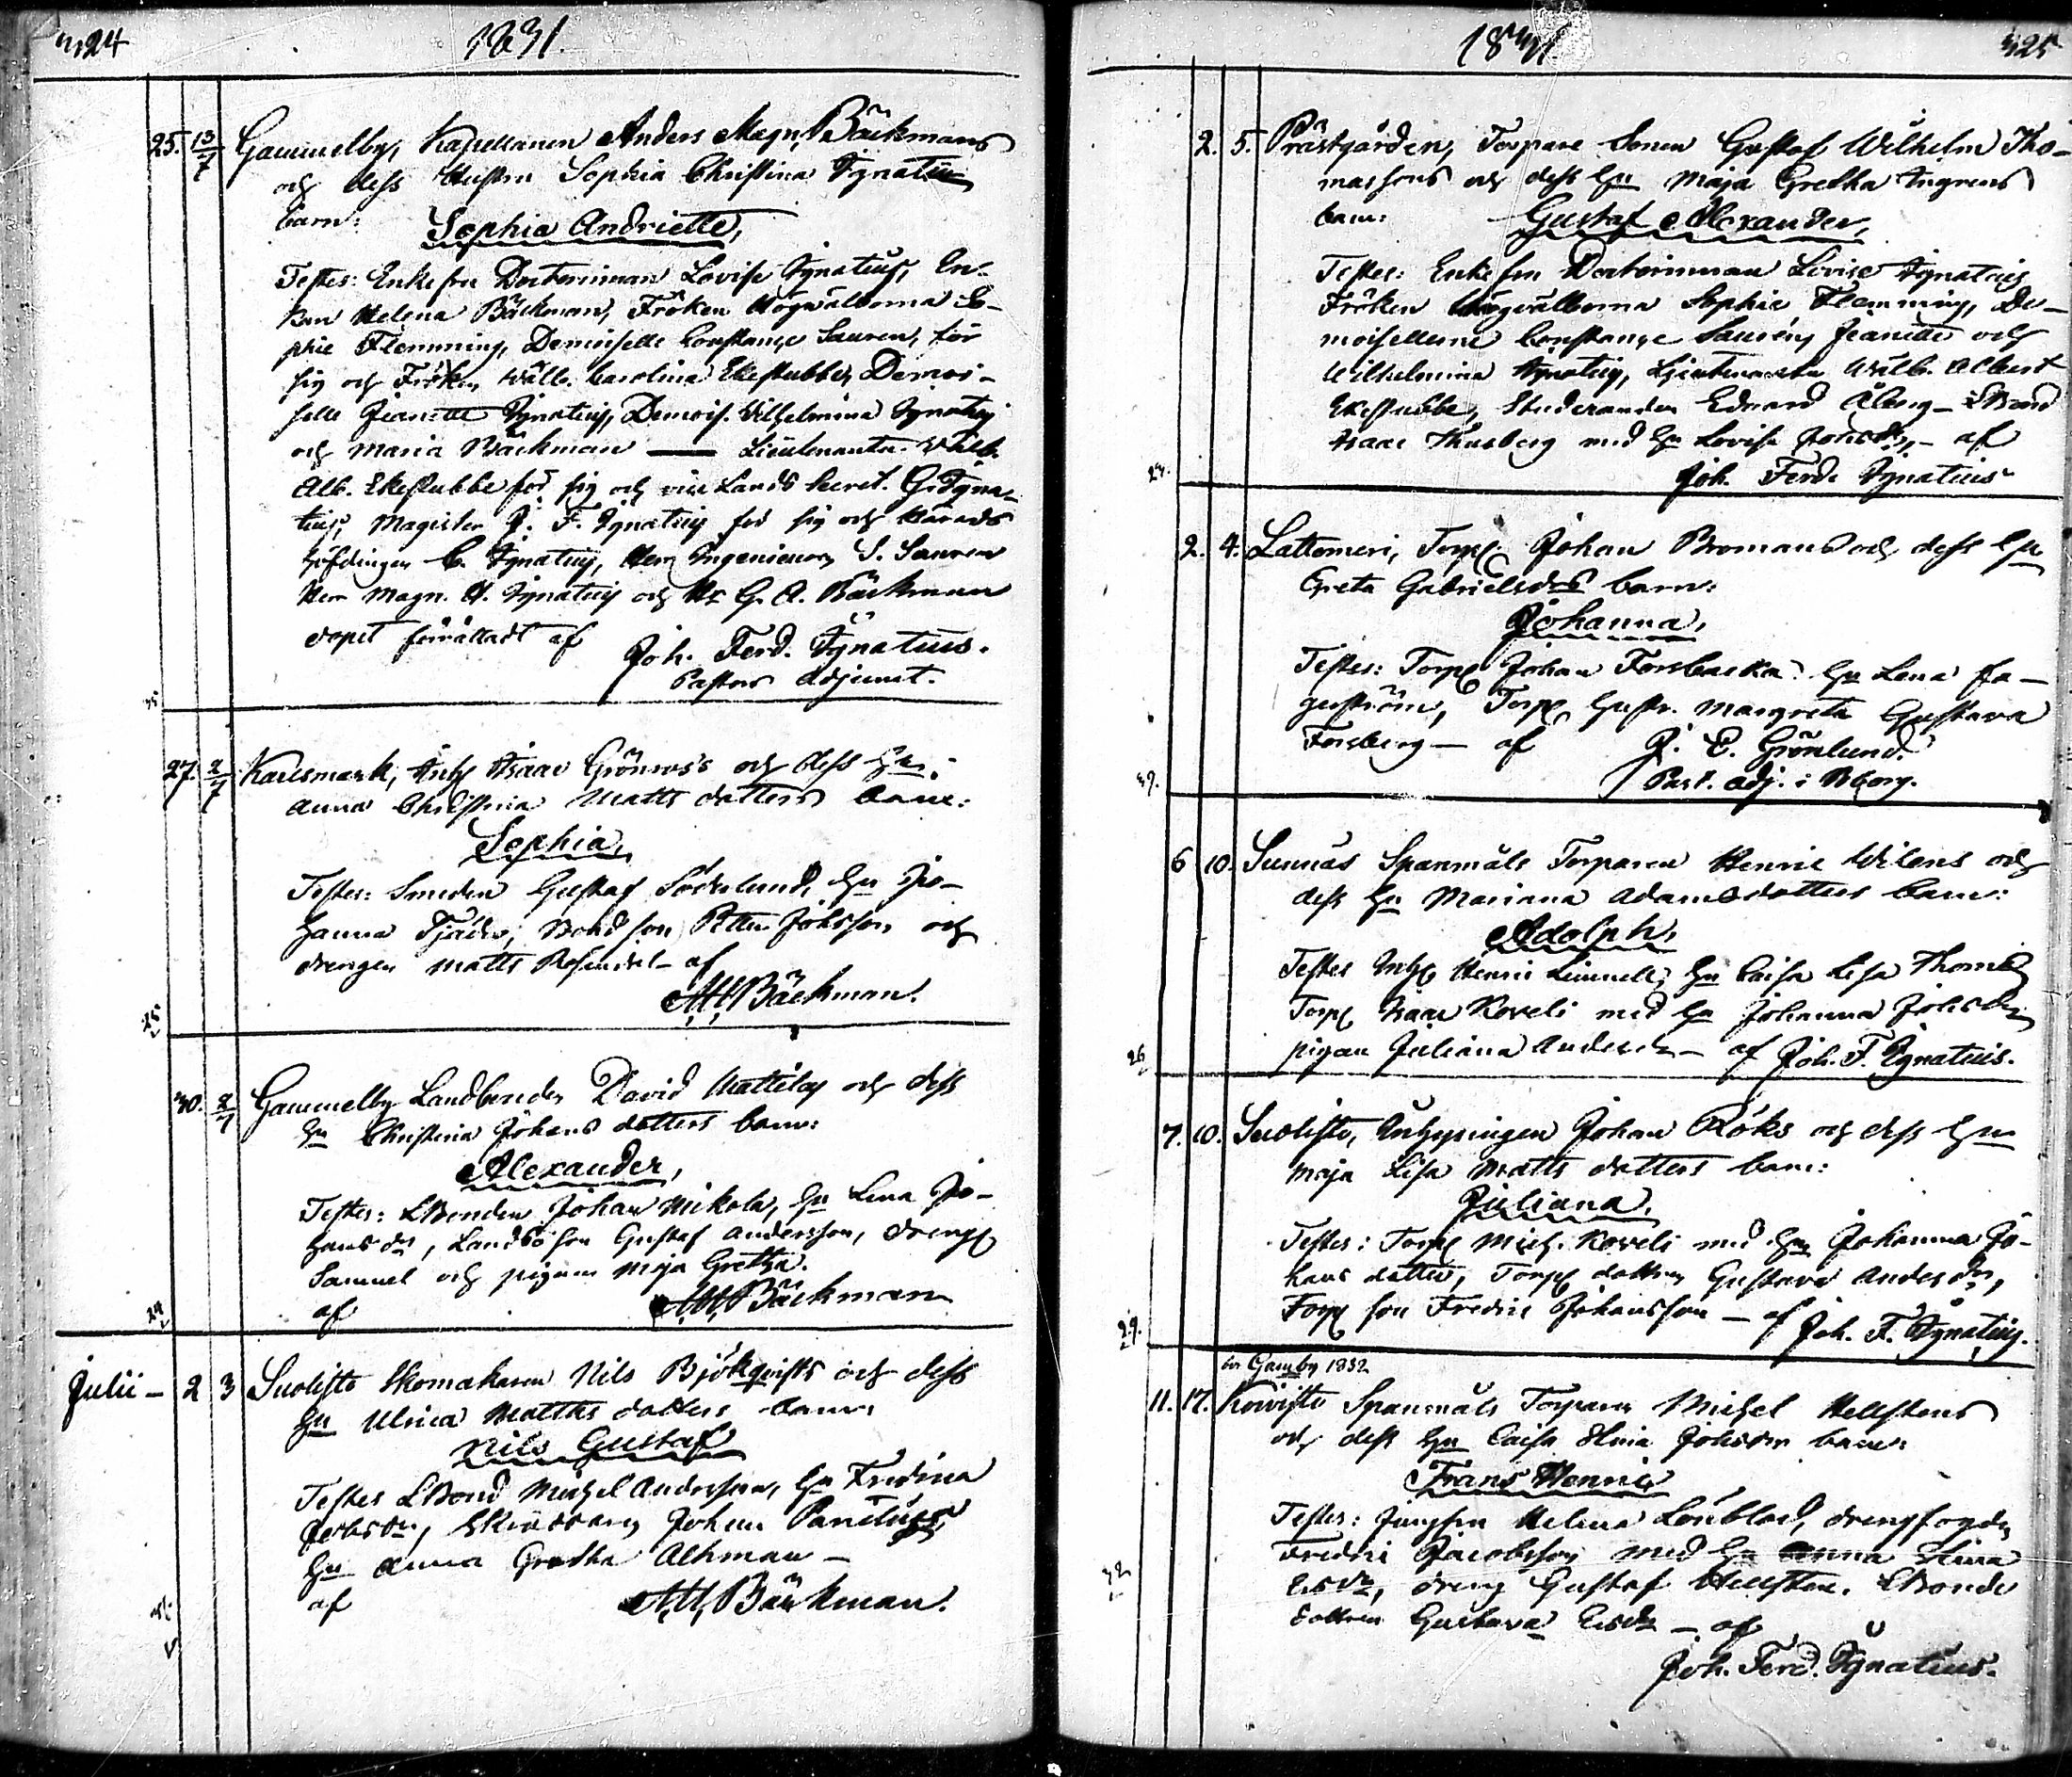 324 1831.
25. 13/7 Gammelby, Kapellanen Anders Magn. Bäckmans
och dess Hustru Sophia Christina Ignatii
barn:
Sophia Andriette,
Testes: Enkefru Doctorinnan Lovisa Ignatius, En-
kan Helena Bäckman, Fröken Högvälborna So-
phie Flemming, Demoiselle Constance Sauren, för
sig och Fröken Välb. Carolina Ekestubbe, Demoi-
selle Jeanette Ignatius, Demois. Vilhelmina Ignatius
och Maria Bäckman — Lieutenanten Välb.
Alb. Ekestubbe för sig och Lands Secret. G. Igna-
tius, Magister J. F. Ignatius för sig och Härads
Höfdingen C. Ignatius, Herr Ingenieuren S. Sauren
Herr Magn. A. Ignatius och Hr G. A. Bäckman
dopet förrättadt af
Joh. Ferd. Ignatius.
Pastors Adjunct.
35
27. 2/7 Karlsmark, Inh. Isaac Grönroos's och dess Hu
Anna Christina Matts dotters barn:
Sophia,
Testes: Smeden Gustaf Söderlund, Hu Jo-
hanna Fjäder, Bondson Petter Johsson och
drengen Matts Rosendal - af
A.M. Bäckman.
25
30. 8/7 Gammelby Landbonden David Mattilas och dess
Hu Christina Johans dotters barn:
Alexander,
Testes: LBonden Johan Mikola, Hu Lena Jo-
hans dr, Landbo son Gustaf Andersson, dreng
Samuel och pigan Maja Gretha.
af A.M. Bäckman
24
Julii - 2 3 Suolisto Skomakaren Nils Björkqvists och dess
Hu Ulrica Matths dotters barn:
Nils Gustaf
Testes LBond Michel Andersson, Hu Fredrica
Jacobsdr, Skräddaren Johan
Hu Anna Gretha Ahlman -
af A.M. Bäckman.
1831. 325
2. 5. Prästgården, Torpare Sonen Gustaf Wilhelm Tho-
massons och dess Hu Maja Gretha Ingrens
barn: Gustaf Alexander,
Testes: Enkefru Doctorinnan Lovise Ignatius
Fröken Högvälborna Sophie Flemming, De-
moisellerne Constance Sauren, Jeanette och
Wilhelmina Ignatius, Lieutenanten Wälb. Albert
Ekestubbe, Studeranden Eduard Åberg - LBond
Isaac Thusberg med Hu Lovisa Johsdr, - af
Joh. Ferd. Ignatius
24.
2. 4. Lattomeri, Torp. Johan Bromans och dess Hu
Greta Gabrielsdrs barn:
Johanna,
Testes: Torp. Johan Forsbacka Hu Lena Fa-
gerström, Torp. Hustr. Margreta Gustava
Forsberg - af J. E. Grönlund.
Past. Adj. i Bborg.
39.
6 10. Sunnäs Spanmåls Torparen Henric Wilens och
dess Hu Mariana Adamsdotters barn:
Adolph,
Testes Inh. Henric Linnell, Hu Caisa Lisa Thomsdr
Torp. Isaac Koveli med Hu Johanna Johsdr
pigan Juliana Andersdr - af Joh. F. Ignatius.
26
7. 10. Suolisto, Inhysingen Johan Röks och dess Hu
Maja Lisa Matts dotters barn:
Juliana.
Testes: Torp. Mich. Koveli med Hu Johanna Jo-
hans dotter, Torp. dottren Gustava Andersdr,
Torp. son Fredric Johansson - af Joh. F. Ignatius.
29.
bor Gamby 1832
11. 17. Koivisto Spanmåls Torparen Michel Hellstens
och dess Hu Caisa Stina Johsdrs barn:
Frans Henric
Testes: Jungfru Helena Lönblad, drengfogden
Fredric Jacobsson med Hu Anna Stina
Ersdr, dreng Gustaf Hellsten. LBonde
dottren Gustava Ersdr - af
Joh. Ferd. Ignatius.
32